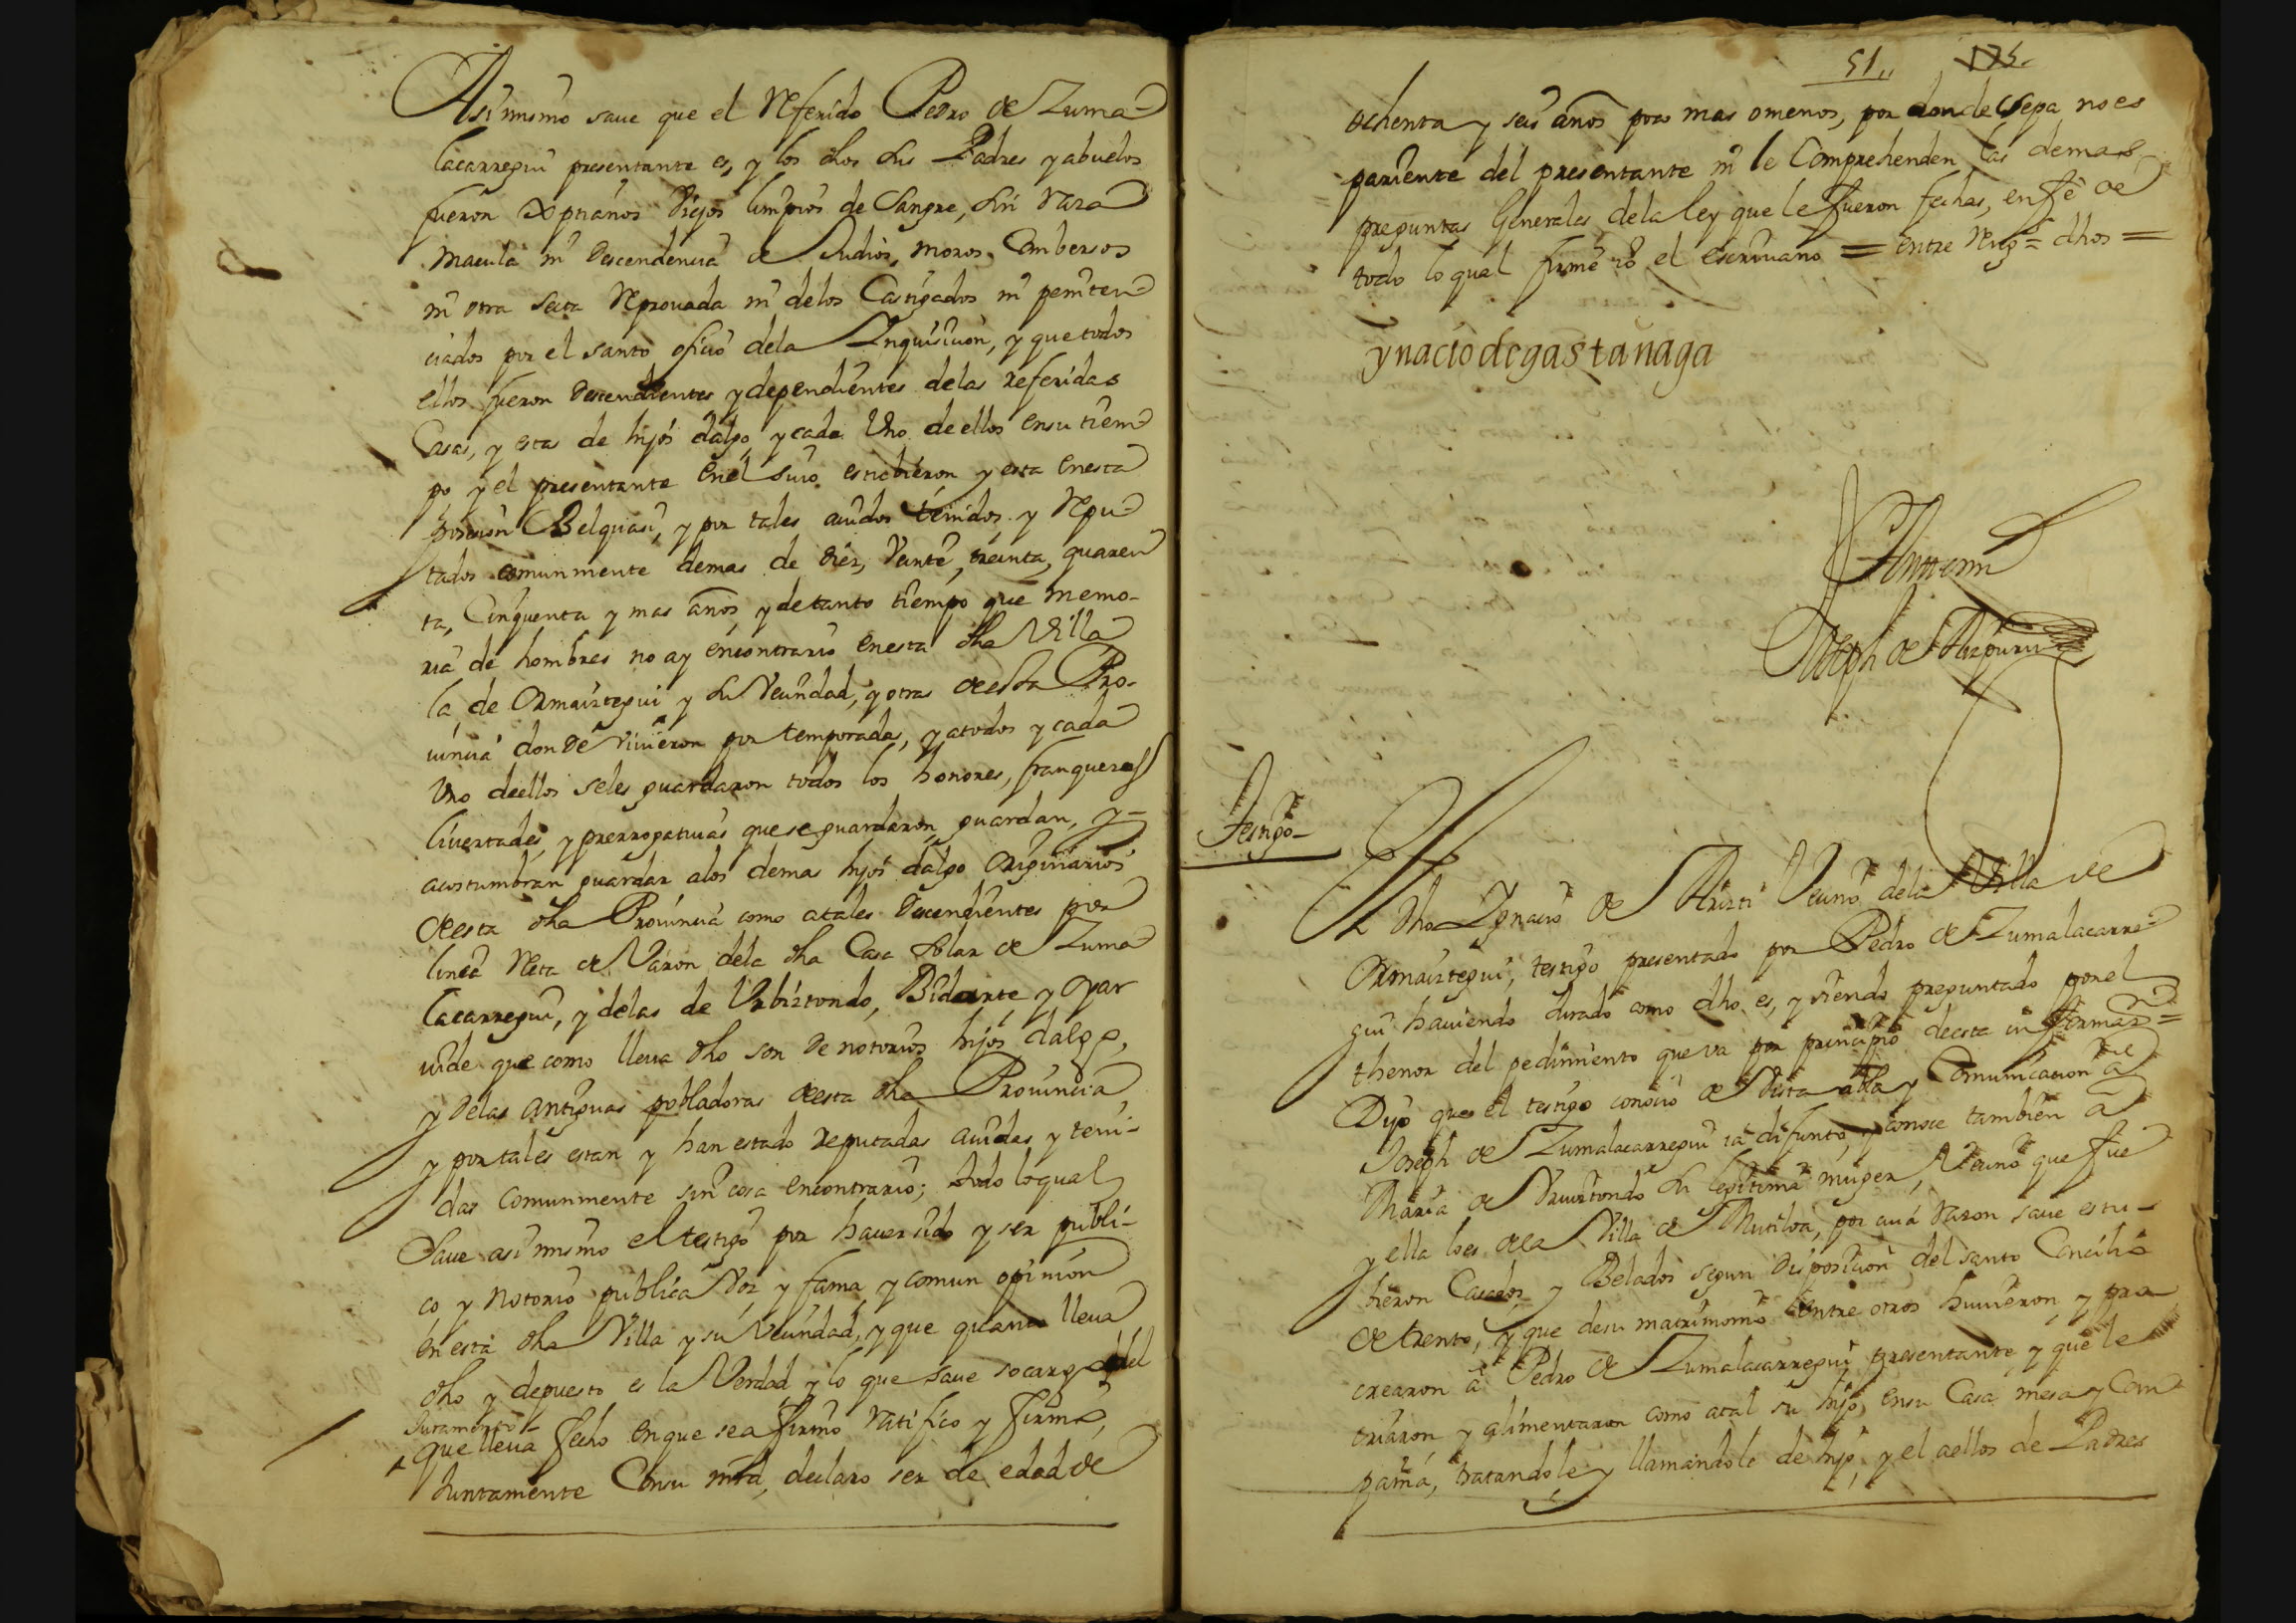 Asi mismo saue que el Referido Pedro de Zuma-
lacarregui presentante es, y los dhos sus Padres y abuelos
fueron Xptianos Viejos limpios de Sangre, sin Raza
macula ni Descendencia de Judios, moros, Combersos
ni otra secta Reprouada ni de los Castigados ni peniten-
ciados por el santo oficio dela Inquisicion, y que todos
ellos fueron Descendientes y dependientes delas referidas
Casas, y estas de hijos dalgo, y cada Uno de ellos en su tiem-
po, y el presentante en el suio estubieron y esta en esta
posesion Belquasi, y por tales auidos tenidos y Repu-
tados comunmente demas de diez, Veinte, treinta, quaren-
ta, Cinquenta y mas años, y de tanto tiempo que memo-
ria de hombres no ay en contrario en esta dha Villa
la de Ormaiztegui y su Vecindad, y otras de esta Pro-
uincia donde viuieron por temporadas, y atodos y cada
Uno de ellos seles guardaron todos los honores, franquezas
liuertades, y prerrogatiuas que se guardaron, guardan, y-
acostumbran guardar alos demas hijos dalgo Originarios
de esta dha Prouincia como atales Descendientes por
linea Recta de Varon dela dha Casa solar de Zuma
lacarregui, y delas de Urbiztondo, Bidarte, y Oyar
uide que como lleua dho son de notorios hijos dalgo,
y delas antiguas pobladoras de esta dha Prouincia,
y por tales estan y han estado reputadas auidas y teni-
das comunmente sin cosa en contrario; todo lo qual
Saue asi mismo el testigo por hauer sido y ser publi-
co y notorio publica Voz y fama y comun opinion
en esta dha Villa y su Vecindad, y que quanto lleua
dho y depuesto es la Verdad y lo que saue so cargo del
Juramento
que lleua fecho en que se afirmo ratifico y firmo,
Juntamente Con su mrd, declaro ser de edad de
51,, 175.
ochenta y seis años poco mas o menos, por donde sepa no es
pariente del presentante ni le Comprehenden las demas
preguntas Generales dela ley que le fueron fechas, en fe de
todo lo qual firme yo el escriuano = entre Reng.s = dhos =
ynacio de gastanaga
Ante mi
Joseph de Aizpuru
Testigo-
El dho Ygnacio de Aristi Vecino dela Villa de
Ormaiztegui, testigo presentado por Pedro de Zumalacarre-
gui hauiendo Jurado como dho es, y siendo preguntado por el
thenor del pedimiento que va por principio de esta informaz.on =
Dijo que el testigo conocio de Vista abla y Comunicacion a
Joseph de Zumalacarregui ia difunto, y conoce tambien a
Maria de Vruiztondo su legitima muger, Vecino que fue
y ella lo es dela Villa de Mutiloa, por cuia razon saue estu-
bieron Casados y Belados segun Disposicion del santo Concilio
de trento, y que de su matrimonio entre otros huuieron y pro
crearon a Pedro de Zumalacarregui presentante y que le
criaron y alimentaron como atal su hijo, en su Casa mesa y Com
pañia, tratandole y llamandole de hijo, y el aellos de Padres